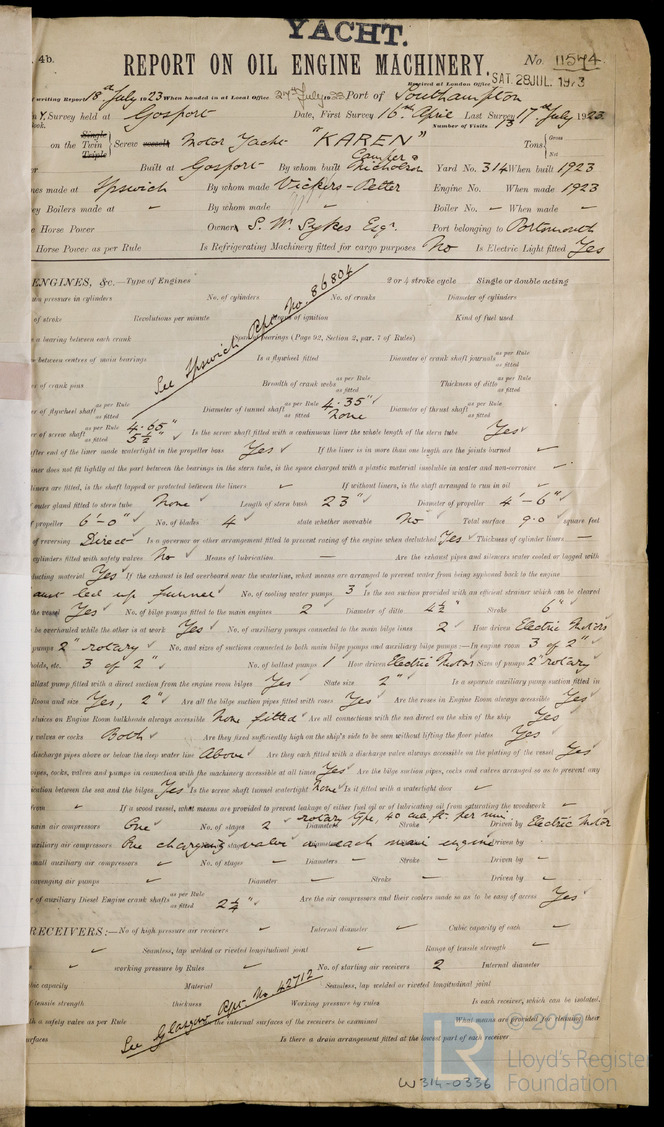 YACHT.
4b.
REPORT ON OIL ENGINE MACHINERY.
No. 11574
Received at London Office SAT. 28 JUL. 1923
writing Report 18th July 1923 When handed in at Local Office 27th July 1923 Port of Southampton
Survey held at Gosport Date, First Survey 16th April Last Survey 17th July 1923
Number of Visits 13
on the Single Twin Triple Screw vessel Motor Yacht "KAREN" Tons Gross Net
Built at Gosport By whom built Camper & Nicholson Yard No. 314 When built 1923
made at Ipswich By whom made Vickers-Petter Engine No. When made 1923
Boilers made at - By whom made - Boiler No. - When made -
Horse Power Owners S. W. Sykes Esqr. Port belonging to Portsmouth
Horse Power as per Rule Is Refrigerating Machinery fitted for cargo purposes No Is Electric Light fitted Yes
ENGINES, &c.—Type of Engines 2 or 4 stroke cycle Single or double acting
pressure in cylinders No. of cylinders No. of cranks Diameter of cylinders
of stroke Revolutions per minute of ignition Kind of fuel used
bearing between each crank bearings (Page 92, Section 2, par. 7 of Rules)
See Ipswich Rpt. No. 86804
between centres of main bearings Is a flywheel fitted Diameter of crank shaft journals as per Rule as fitted
of crank pins Breadth of crank webs as per Rule as fitted Thickness of ditto as per Rule as fitted
of flywheel shaft as per Rule as fitted Diameter of tunnel shaft as per Rule 4.35" as fitted None Diameter of thrust shaft as per Rule as fitted
of screw shaft as per Rule 4.65" as fitted 5½" Is the screw shaft fitted with a continuous liner the whole length of the stern tube Yes
after end of the liner made watertight in the propeller boss Yes If the liner is in more than one length are the joints burned -
liner does not fit tightly at the part between the bearings in the stern tube, is the space charged with a plastic material insoluble in water and non-corrosive -
liners are fitted, is the shaft lapped or protected between the liners - If without liners, is the shaft arranged to run in oil -
outer gland fitted to stern tube None Length of stern bush 23" Diameter of propeller 4'-6"
propeller 6'-0" No. of blades 4 state whether moveable No Total surface 9.0 square feet
of reversing Direct Is a governor or other arrangement fitted to prevent racing of the engine when declutched Yes Thickness of cylinder liners -
cylinders fitted with safety valves No Means of lubrication - Are the exhaust pipes and silencers water cooled or lagged with
ducting material Yes If the exhaust is led overboard near the waterline, what means are arranged to prevent water from being syphoned back to the engine
led up funnel No. of cooling water pumps 3 Is the sea suction provided with an efficient strainer which can be cleared
the vessel Yes No. of bilge pumps fitted to the main engines 2 Diameter of ditto 4½" Stroke 6"
be overhauled while the other is at work Yes No. of auxiliary pumps connected to the main bilge lines 2 How driven Electric Motors
pumps 2" rotary No. and sizes of suctions connected to both main bilge pumps and auxiliary bilge pumps:—In engine room 3 of 2"
holds, etc. 3 of 2" No. of ballast pumps 1 How driven Electric Motor Size of pumps 2" rotary
ballast pump fitted with a direct suction from the engine room bilges Yes State size 2" Is a separate auxiliary pump suction fitted in
Room and size Yes, 2" Are all the bilge suction pipes fitted with roses Yes Are the roses in Engine Room always accessible Yes
sluices on Engine Room bulkheads always accessible None fitted Are all connections with the sea direct on the skin of the ship Yes
valves or cocks Both Are they fixed sufficiently high on the ship's side to be seen without lifting the floor plates Yes
discharge pipes above or below the deep water line Above Are they each fitted with a discharge valve always accessible on the plating of the vessel Yes
pipes, cocks, valves and pumps in connection with the machinery accessible at all times Yes Are the bilge suction pipes, cocks and valves arranged so as to prevent any
between the sea and the bilges Yes Is the screw shaft tunnel watertight None Is it fitted with a watertight door -
from - If a wood vessel, what means are provided to prevent leakage of either fuel oil or of lubricating oil from saturating the woodwork -
main air compressors One No. of stages 2 rotary type, 40 cu. ft. per min. Diameters Stroke Driven by Electric Motor
auxiliary air compressors One charging valve on each main engine Driven by -
small auxiliary air compressors - No. of stages - Diameters - Stroke - Driven by -
scavenging air pumps - Diameter - Stroke - Driven by -
of auxiliary Diesel Engine crank shafts as per Rule as fitted 2¼" Are the air compressors and their coolers made so as to be easy of access Yes
RECEIVERS:—No of high pressure air receivers - Internal diameter - Cubic capacity of each -
Seamless, lap welded or riveted longitudinal joint - Range of tensile strength -
working pressure by Rules - No. of starting air receivers 2 Internal diameter
capacity Material Seamless, lap welded or riveted longitudinal joint
of tensile strength thickness Working pressure by rules Is each receiver, which can be isolated,
See Glasgow Rpt. No. 42712
a safety valve as per Rule the internal surfaces of the receivers be examined What means are provided for cleaning their
surfaces Is there a drain arrangement fitted at the lowest part of each receiver
W314-0336
LR
© 2019
Lloyd's Register
Foundation